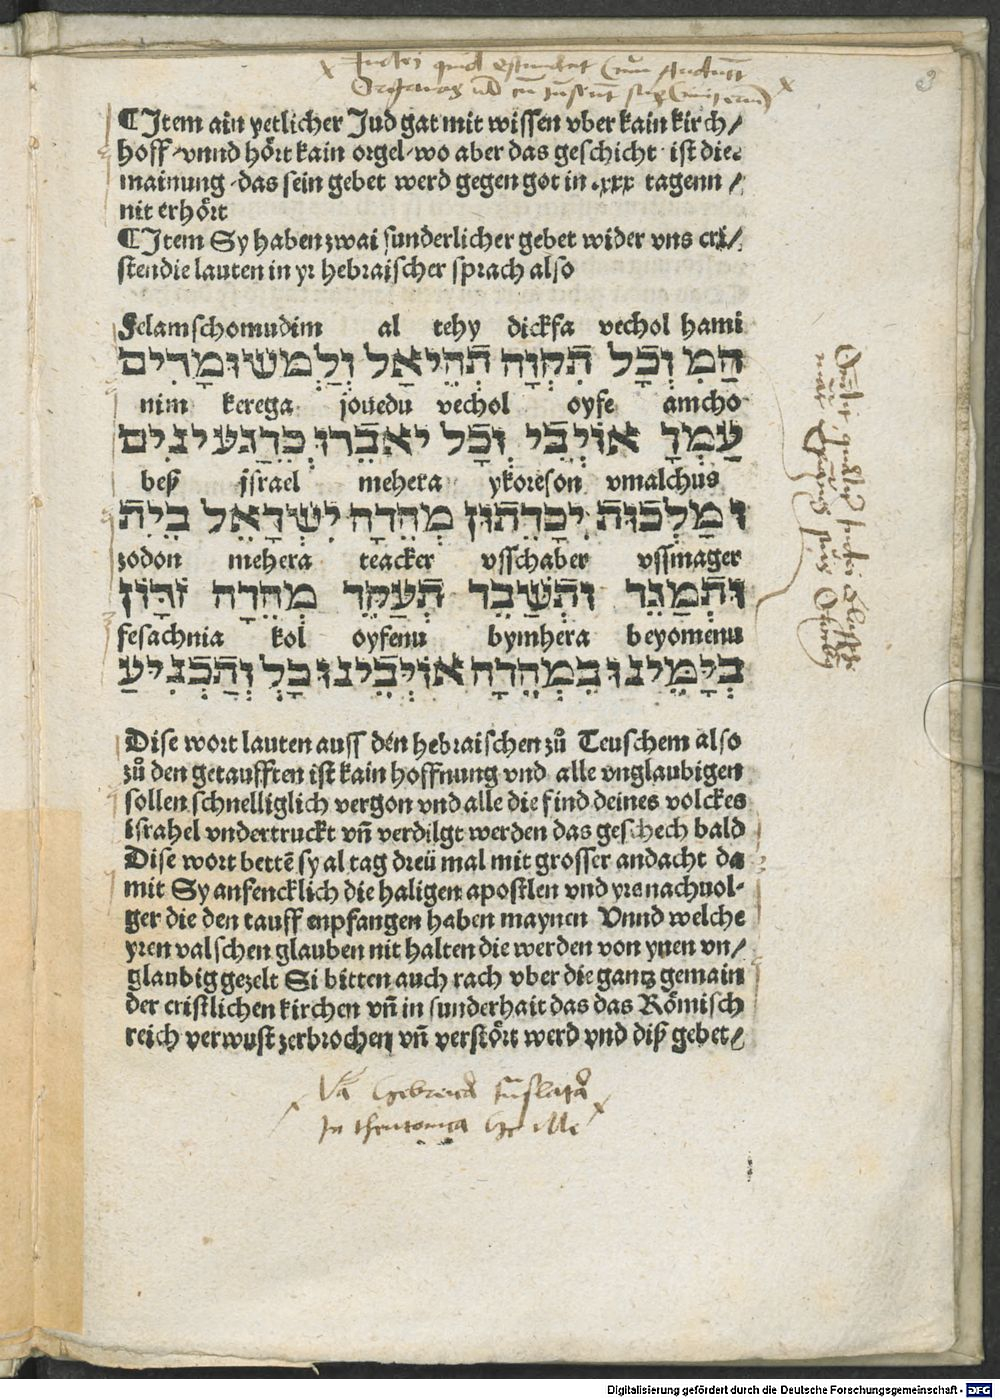 Judei quid
¶ Item ain yetlicher Jud gat mit wissen vber kain kirch/
hoff vnnd hört kain orgel wo aber das geschicht ist die
mainung das sein gebet werd gegen got in .xxx tagenn /
nit erhört
¶ Item Sy haben zwai sunderlicher gebet wider vns cri/
sten die lauten in yr hebraischer sprach also
Felamschomudim al tehy dickfa vechol hami
הַמִ וְכָל תִּקְוָה תְּהִי אַל וְלַמְשׁוּמָדִים
nim kerega jouedu vechol oyfe amcho
עַמְךָ אוֹיְבֵי וְכָל יאבֵדוּ כְּרֶגע ינִים
beß jsrael mehera ykoreson vmalchus
וּמַלְכוּת יִכָּרֵתוּן מְהֵרָה יִשְׂרָאֵל בֵּית
zodon mehera teacker vsschaber vssmager
וּתְמַגֵּר וּתְשַׁבֵּר תְּעַקֵּר מְהֵרָה זדוֹן
fesachnia kol oyfenu bymhera beyomenu
בְּיָמֵינוּ בִּמְהֵרָה אוֹיְבֵינוּ כָּל וְתַכְנִיעַ
Dise wort lauten auss den hebraischen zů Teuschem also
zů den getaufften ist kain hoffnung vnd alle vnglaubigen
sollen schnelliglich vergon vnd alle die find deines volckes
israhel vndertruckt vn̄ verdilgt werden das geschech bald
Dise wort bettē sy al tag dreü mal mit grosser andacht da
mit Sy anfencklich die haligen apostlen vnd yre nachuol-
ger die den tauff enpfangen haben maynen Vnnd welche
yren valschen glauben nit halten die werden von ynen vn/
glaubig gezelt Si bitten auch rach vber die gantz gemain
der cristlichen kirchen vn̄ in sunderhait das das Römisch
reich verwust zerbrochen vn̄ verstört werd vnd diß gebet/
In theutonica
Digitalisierung gefördert durch die Deutsche Forschungsgemeinschaft - DFG